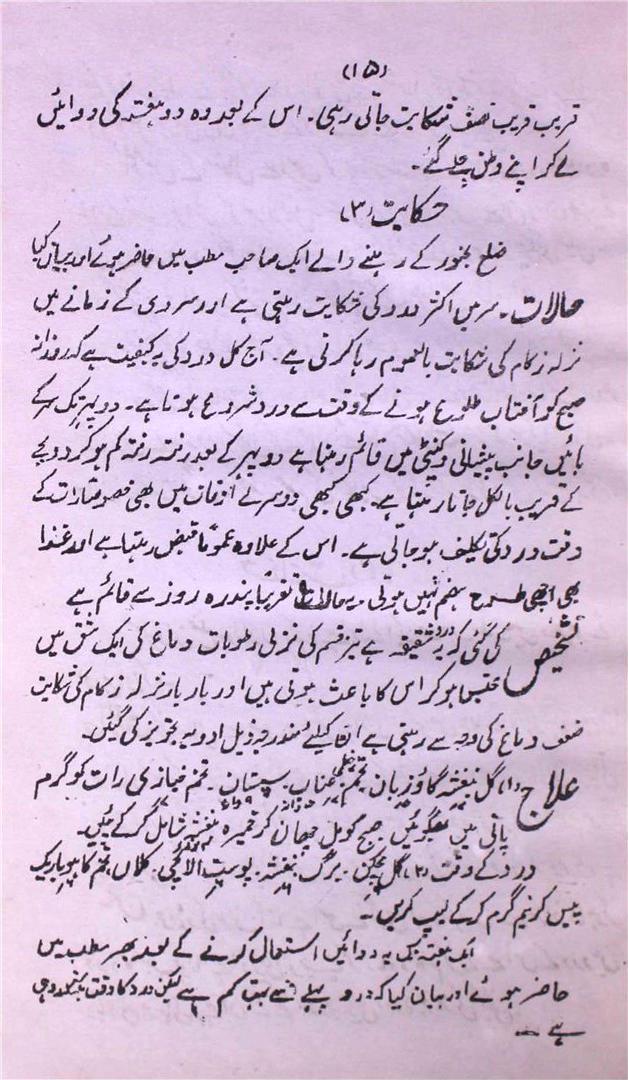 (۱۵)
قریب قریب نصف شکایت جاتی رہی۔ اس کے بعد وہ دو ہفتہ کی دوائیں
لے کر اپنے وطن چلے گئے۔
حکایت (۳)
ضلع بجنور کے رہنے والے ایک صاحب مطب میں حاضر ہوئے اور بیان کیا
حالات۔ سر میں اکثر درد کی شکایت رہتی ہے اور سردی کے زمانے میں
نزلہ زکام کی شکایت بالعموم رہا کرتی ہے۔ آج کل درد کی یہ کیفیت ہے کہ روزانہ
صبح کو آفتاب طلوع ہونے کے وقت سے درد شروع ہوتا ہے۔ دوپہر تک سر کے
بائیں جانب پیشانی و کنپٹی میں قائم رہتا ہے دوپہر کے بعد رفتہ رفتہ کم ہو کر دو بجے
کے قریب بالکل جاتا رہتا ہے۔ کبھی کبھی دوسرے اوقات میں بھی خصوصًا رات کے
وقت درد کی تکلیف ہو جاتی ہے۔ اس کے علاوہ عمومًا قبض رہتا ہے اور غذا
بھی اچھی طرح ہضم نہیں ہوتی۔ یہ حالات تقریبًا پندرہ روز سے قائم ہے
تشخیص کی گئی کہ یہ درد شقیقہ ہے تیز قسم کی نزلی رطوبات دماغ کی ایک شق میں
محتبس ہو کر اس کا باعث ہوتی ہیں اور بار بار نزلہ زکام کی شکایت
ضعف دماغ کی وجہ سے رہتی ہے مندرجہ ذیل ادویہ تجویز کی گئیں۔
علاج (۱) گل بنفشہ گاؤزبان۔ تخم خطمی عناب۔ سپستان۔ تخم خبازی رات کو گرم
پانی میں بھگوئیں صبح کو مل چھان کر خمیرہ بنفشہ شامل کر کے پئیں۔
درد کے وقت (۲) گل۔ برگ بنفشہ۔ پوست الائچی کلاں۔ تخم کاہو باریک
پیس کر نیم گرم کر کے لیپ کریں۔
ایک ہفتہ تک یہ دوائیں استعمال کرنے کے بعد پھر مطب میں
حاضر ہوئے اور بیان کیا کہ درد پہلے سے بہت کم ہے لیکن درد کا وقت وہی
ہے۔